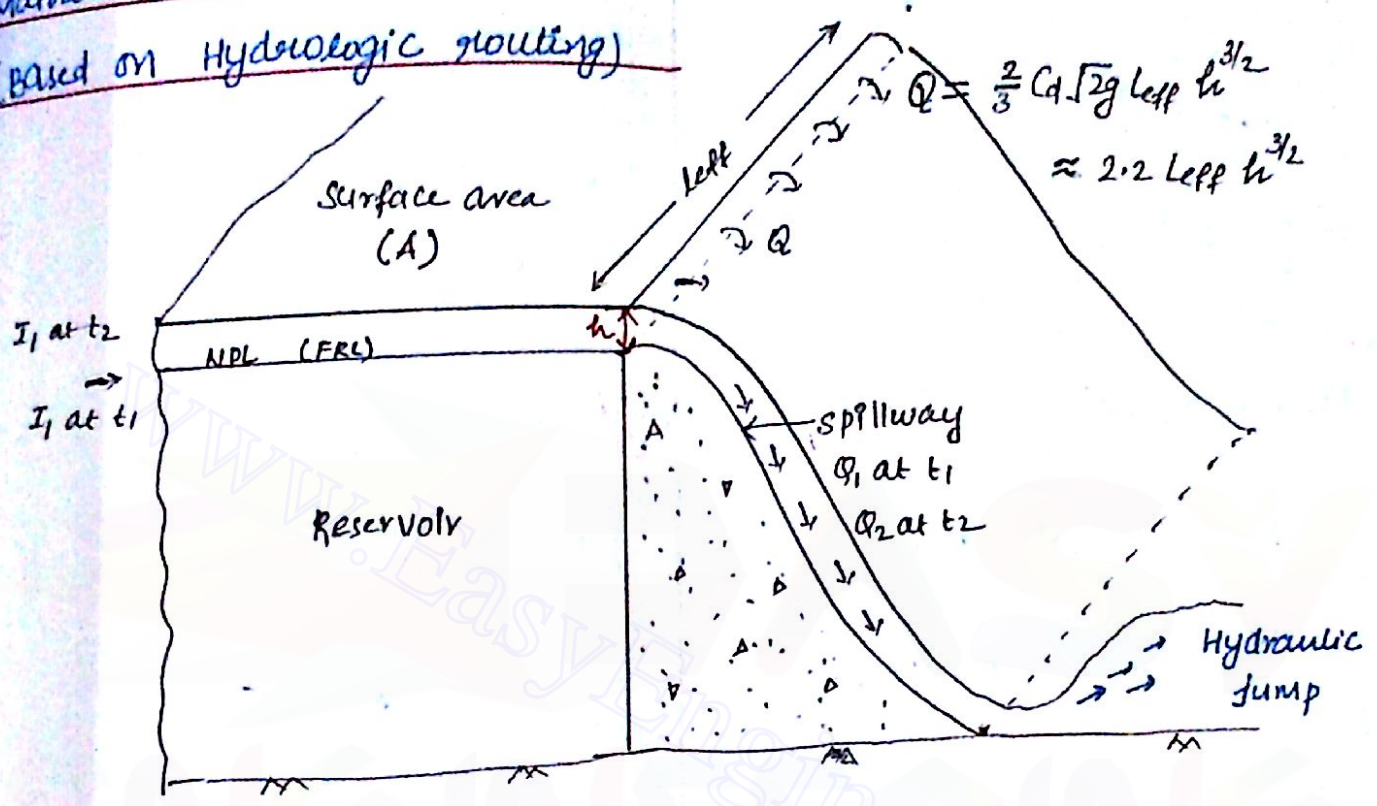 (Based on Hydrologic routing)
Q = 2/3 Cd √2g Leff h^3/2
≈ 2.2 Leff h^3/2
Leff
Surface area
(A)
Q
I1 at t2
h
NPL (FRL)
I1 at t1
Spillway
Q1 at t1
Q2 at t2
Reservoir
Hydraulic
Jump
www.EasyEngin